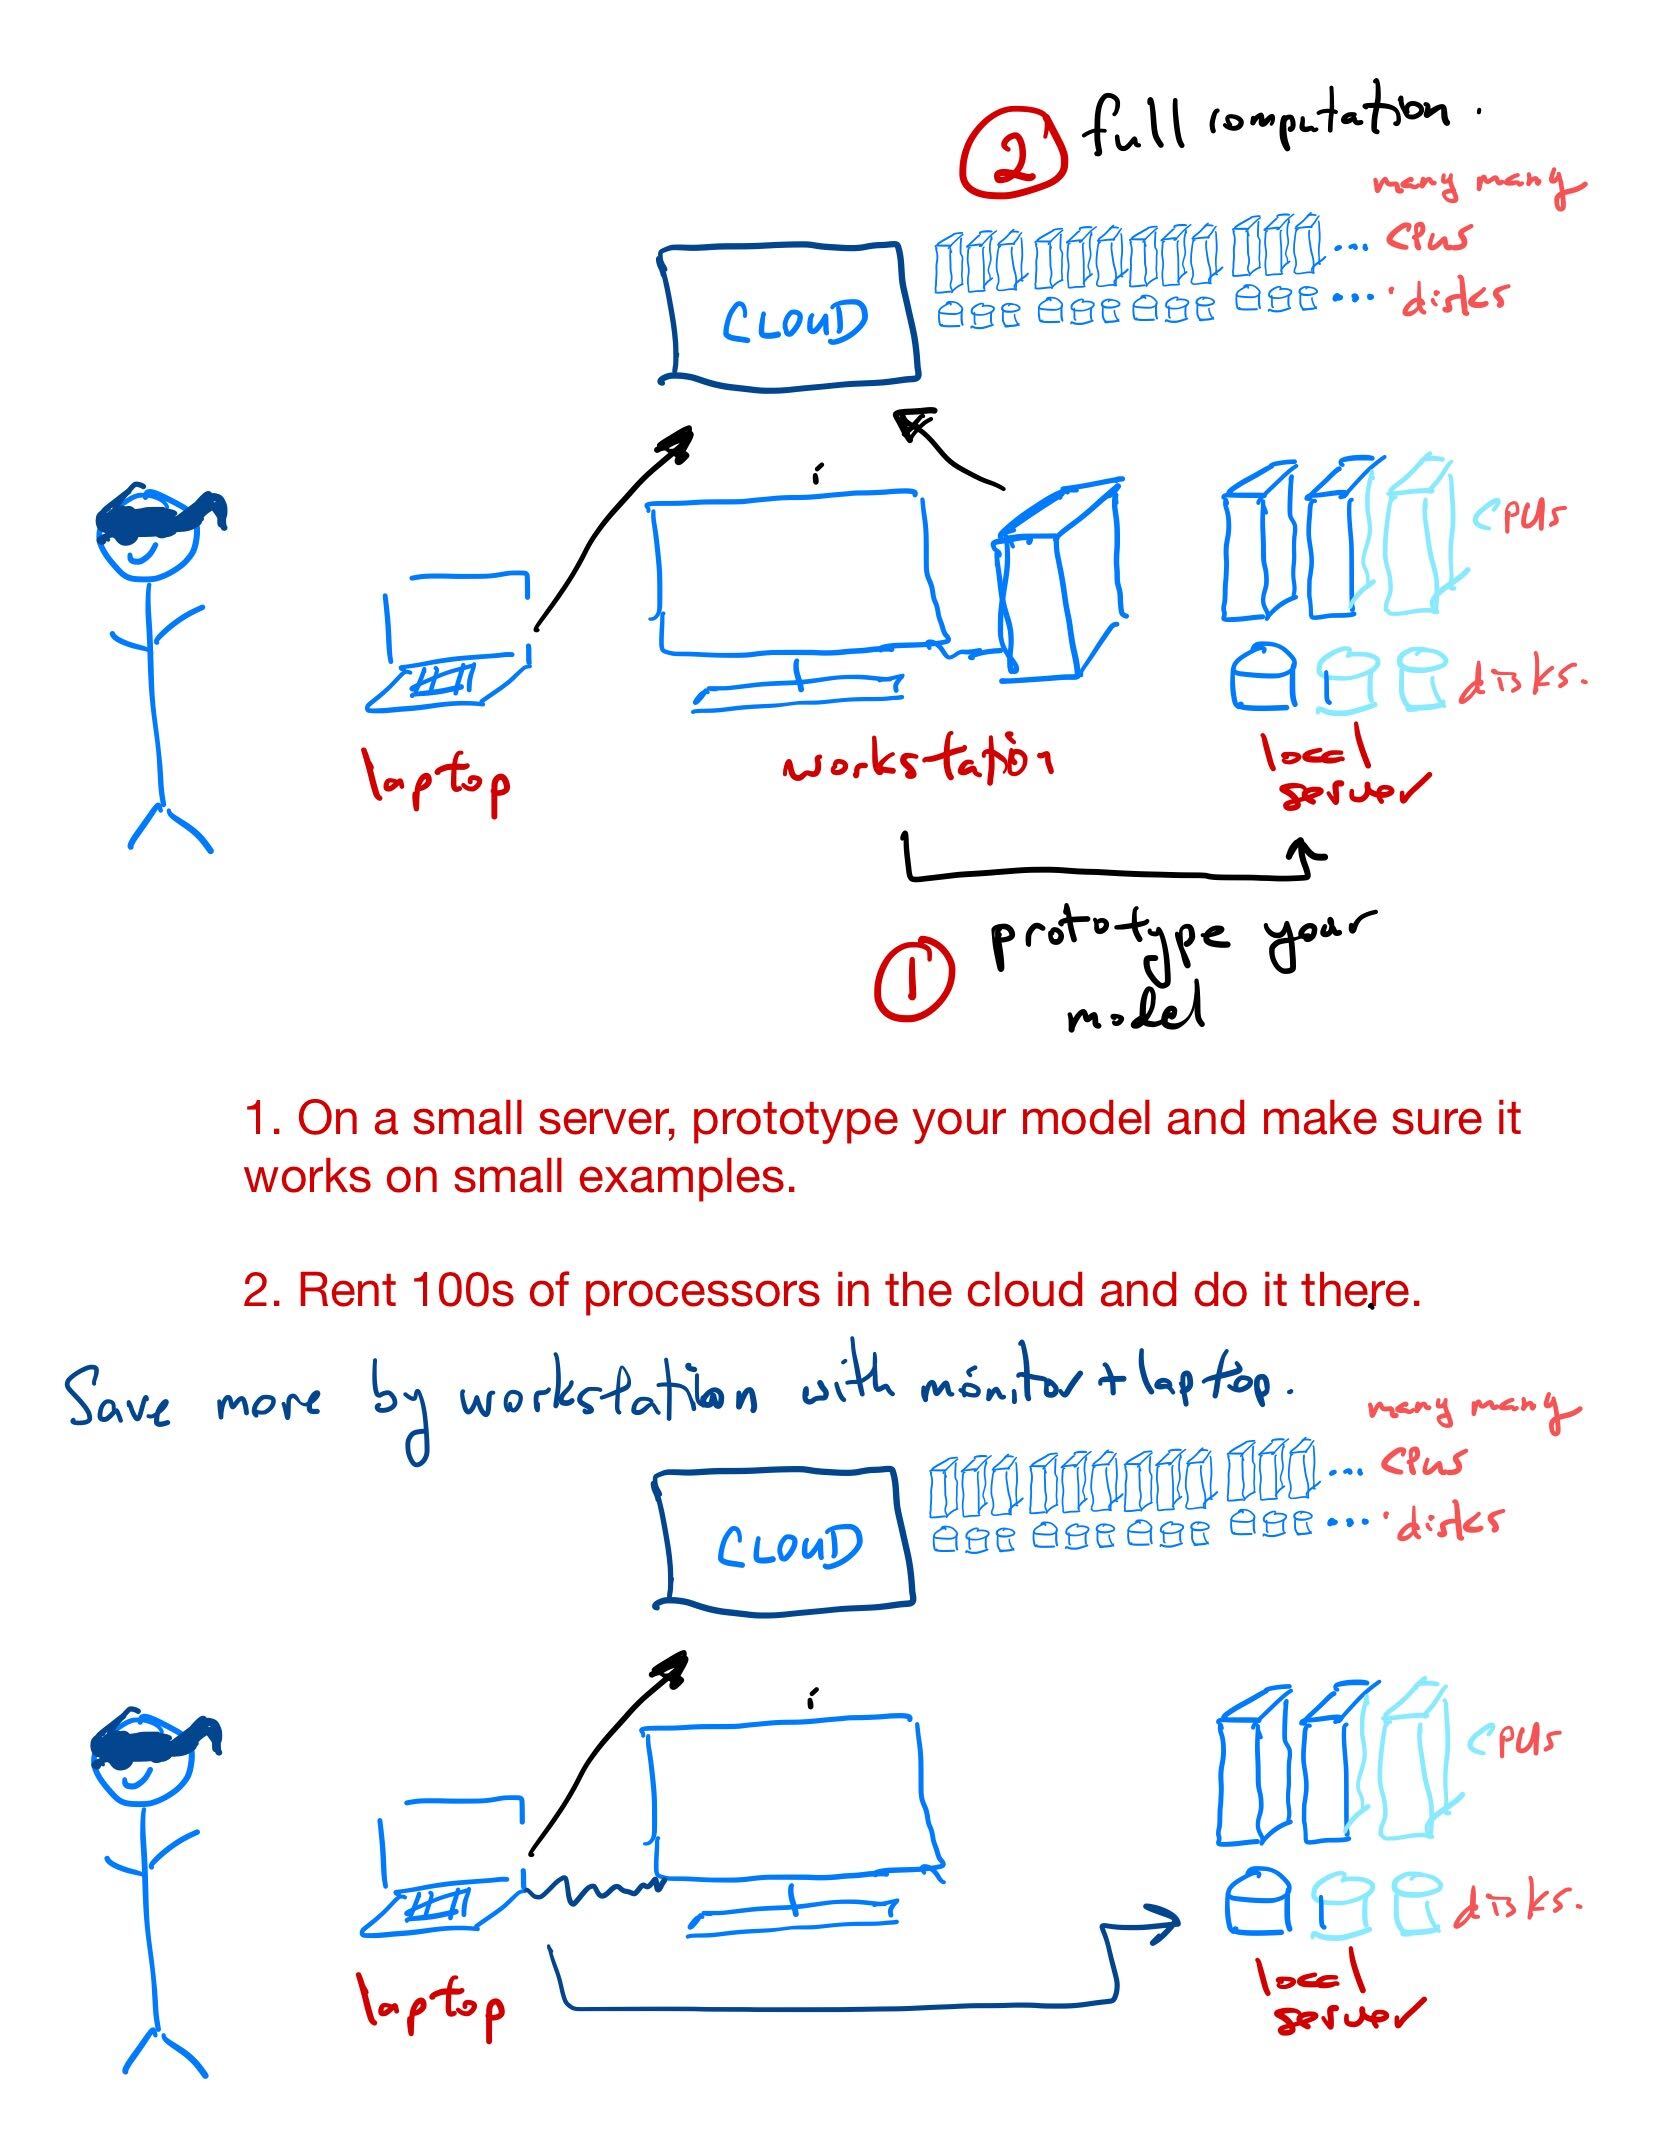 2 full computation.
many many
CPUs
disks
CLOUD
CPUs
disks.
laptop
workstation
local
server
1 prototype your
model
1. On a small server, prototype your model and make sure it
works on small examples.
2. Rent 100s of processors in the cloud and do it there.
Save more by workstation with monitor + laptop.
many many
CPUs
disks
CLOUD
CPUs
disks.
laptop
local
server